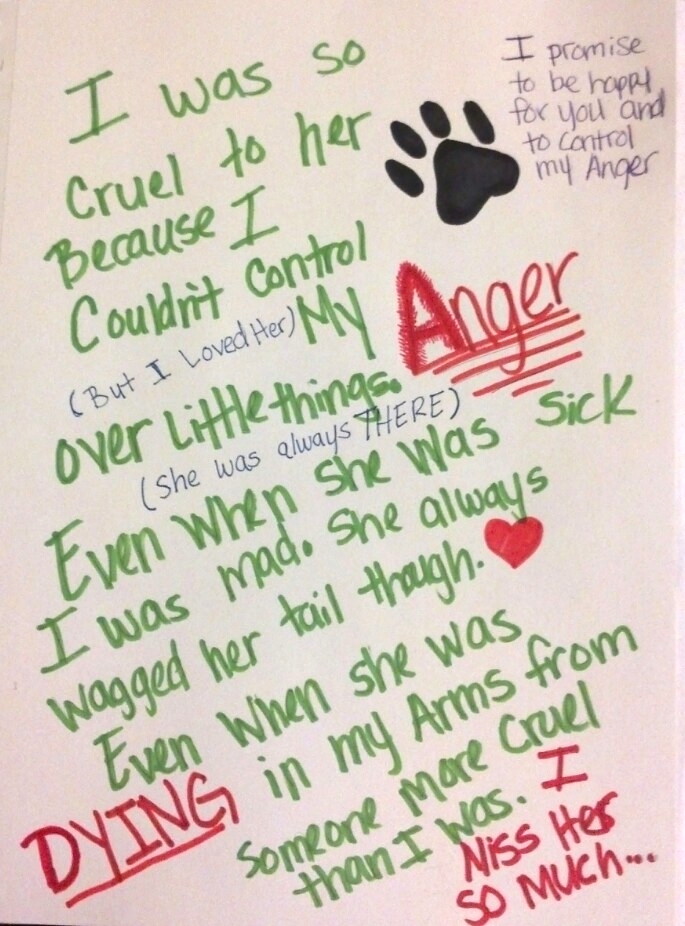 I was so
cruel to her
Because I
Couldn't control
(But I Loved Her) My Anger
over Little things.
(she was always THERE)
Even when she was sick
I was mad. She always
wagged her tail though.
Even when she was
DYING in my Arms from
someone more Cruel
than I was. I
Niss Her
so Much...
I promise
to be happy
for you and
to control
my Anger